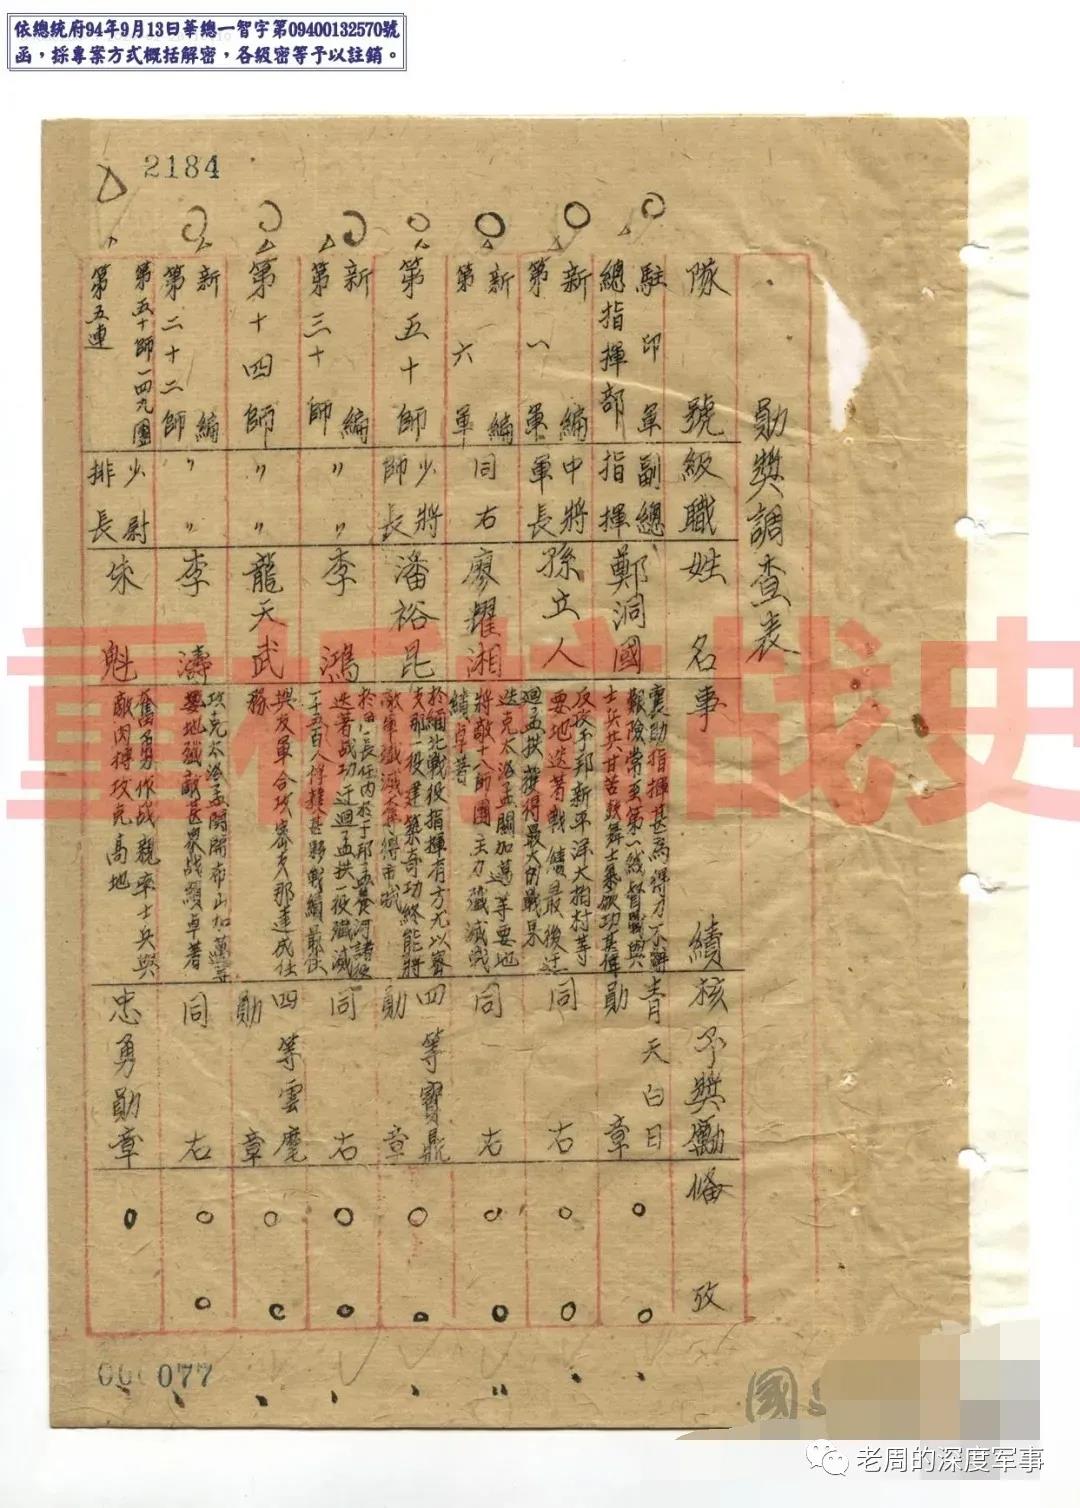 依總統府94年9月13日華總一智字第09400132570號
函，採專案方式概括解密，各級密等予以註銷。
2184
勛獎調查表
隊號
級職
姓名
事績
核予獎勵
備攷
駐印軍
總指揮部
副總
指揮
鄭洞國
襄助指揮甚為得力不辭
艱險常至第一線督戰與
士兵共甘苦鼓舞士氣厥功甚偉
青天白日
勛章
新編
第一軍
中將
軍長
孫立人
反攻于邦新平洋大柏村等
要地迭著戰績最後迂
迴孟拱獲得最大的戰果
同右
新編
第六軍
同右
廖耀湘
迭克太洛孟關加邁等要地
將敵十八師團主力殲滅
績卓著
第五十師
少將
師長
潘裕昆
於緬北戰役指揮有方尤以密
支那一役建築奇功終能將
敵軍殲滅
四等寶鼎
勛章
新編
第三十師
〃〃
李鴻
迭著战功迂迴孟拱一役殲滅
同右
第十四師
〃〃
龍天武
與友軍合攻密支那達成任
務
四等雲麾
勛章
新編
第二十二師
〃〃
李濤
攻克太洛孟關間布山加邁等
要地殲敵甚眾战績卓著
同右
第五十師一四九團
第五連
少尉
排長
朱魁
奮勇作战親率士兵與
敵肉搏攻克高地
忠勇勛章
077
國
重 战史
老周的深度军事